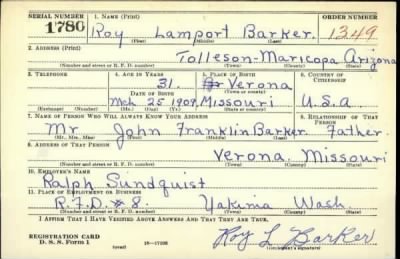 SERIAL NUMBER
1. NAME (Print)
ORDER NUMBER
1780
Roy Lamport Barker.
1349
(First) (Middle) (Last)
2. ADDRESS (Print)
Tolleson-Maricopa Arizona
(Number and street or R. F. D. number) (Town) (County) (State)
3. TELEPHONE
4. AGE IN YEARS
5. PLACE OF BIRTH
6. COUNTRY OF CITIZENSHIP
31.
Verona
DATE OF BIRTH
Mch 25 1909,
Missouri
U.S.A
(Exchange) (No.)
(Mo.) (Day) (Yr.)
(State or country)
7. NAME OF PERSON WHO WILL ALWAYS KNOW YOUR ADDRESS
8. RELATIONSHIP OF THAT PERSON
Mr. John Franklin Barker. Father.
(Mr., Mrs., Miss) (First) (Middle) (Last)
9. ADDRESS OF THAT PERSON
Verona, Missouri
(Number and street or R. F. D. number) (Town) (County) (State)
10. EMPLOYER'S NAME
Ralph Sundquist
11. PLACE OF EMPLOYMENT OR BUSINESS
R.F.D. #8. Yakima Wash.
(Number and street or R. F. D. number) (Town) (County) (State)
I AFFIRM THAT I HAVE VERIFIED ABOVE ANSWERS AND THAT THEY ARE TRUE.
REGISTRATION CARD
D. S. S. Form 1
(over)
16-17105
Roy L Barker
(Registrant's signature)